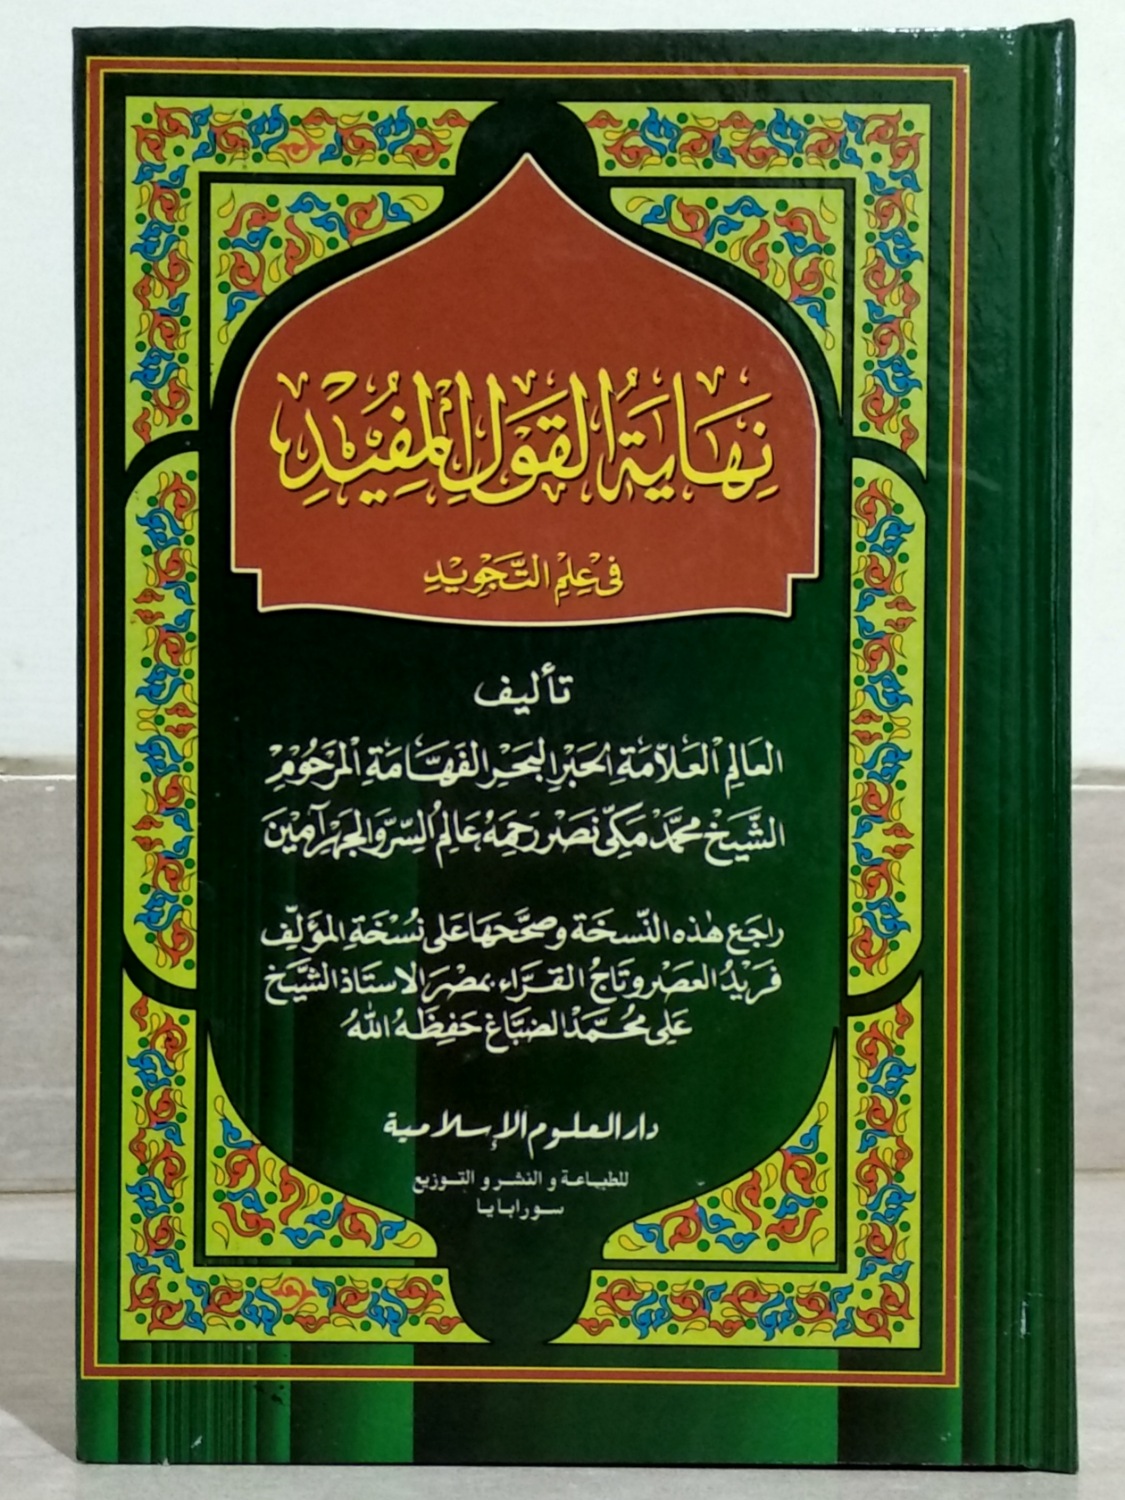 نِهَايَةُ الْقَوْلِ الْمُفِيْدِ
فِى عِلْمِ التَّجْوِيْدِ
تأليف
العَالِمِ الْعَلَّامَةِ الْحَبْرِ الْبَحْرِ الْفَهَّامَةِ الْمَرْحُوْمِ
الشَّيْخْ مُحَمَّدْ مَكِّى نَصْر رَحِمَهُ عَالِمُ السِّرِّ وَالْجَهْرِ آمِيْنَ
راجَع هٰذه النّسخَة وصحَّحَهَا عَلى نُسْخَةِ المؤَلِّف
فَرِيْدُ العَصْر وتَاجُ القرَّاء بمصْرَ الاستاذ الشَّيَخ
عَلِى مُحَمَّدْ الضبَّاغ حَفِظَهُ اللّٰهُ
دار العلوم الإسلامية
للطباعة و النشر و التوزيع
سورابايا